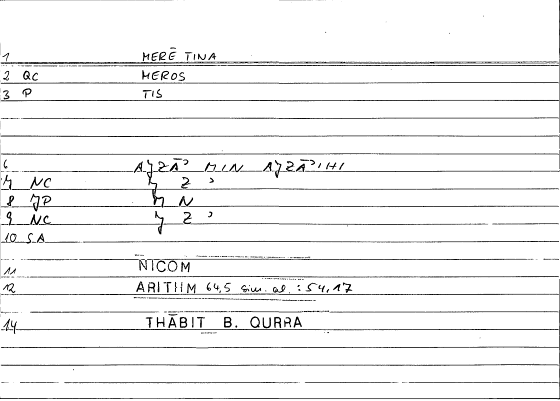 1 MERĒ TINA
2 QC MEROS
3 P TIS
6 AJZĀ' MIN AJZĀ'IHI
7 NC J Z '
8 JP M N
9 NC J Z '
10 S.A
11 NICOM
12 ARITHM 64,5 sim. al. : 54,17
14 THĀBIT B. QURRA